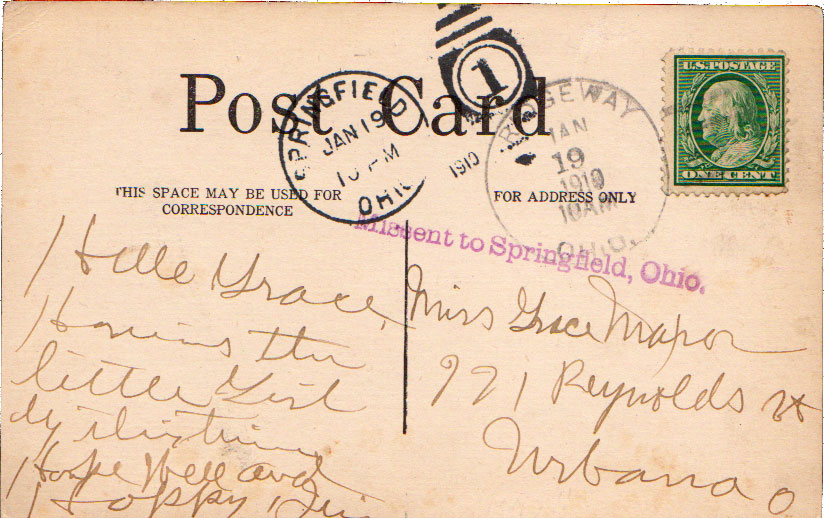 Post Card
SPRINGFIELD
JAN 19
10 PM
1910
OHIO
1
RIDGEWAY
JAN
19
1910
10AM
OHIO.
U.S. POSTAGE
ONE CENT
THIS SPACE MAY BE USED FOR
CORRESPONDENCE
FOR ADDRESS ONLY
Missent to Springfield, Ohio.
Hello Grace,
the
little Girl
Hope Well and
Happy
Miss Grace
921 Reynolds st
Urbana O